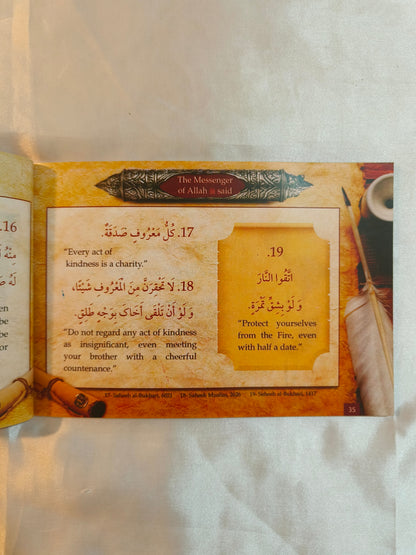 16.
مِنْهُ
لَهُ
en
be
be
or
The Messenger
of Allah ﷺ said
17. كُلُّ مَعْرُوفٍ صَدَقَةٌ.
“Every act of
kindness is a charity.”
18. لَا تَحْقِرَنَّ مِنَ الْمَعْرُوفِ شَيْئًا،
وَلَوْ أَنْ تَلْقَى أَخَاكَ بِوَجْهٍ طَلْقٍ.
“Do not regard any act of kindness
as insignificant, even meeting
your brother with a cheerful
countenance.”
19.
اتَّقُوا النَّارَ
وَلَوْ بِشِقِّ تَمْرَةٍ.
“Protect yourselves
from the Fire, even
with half a date.”
17- Saheeh al-Bukhari, 6021 18- Saheeh Muslim, 2626 19- Saheeh al-Bukhari, 1417
35